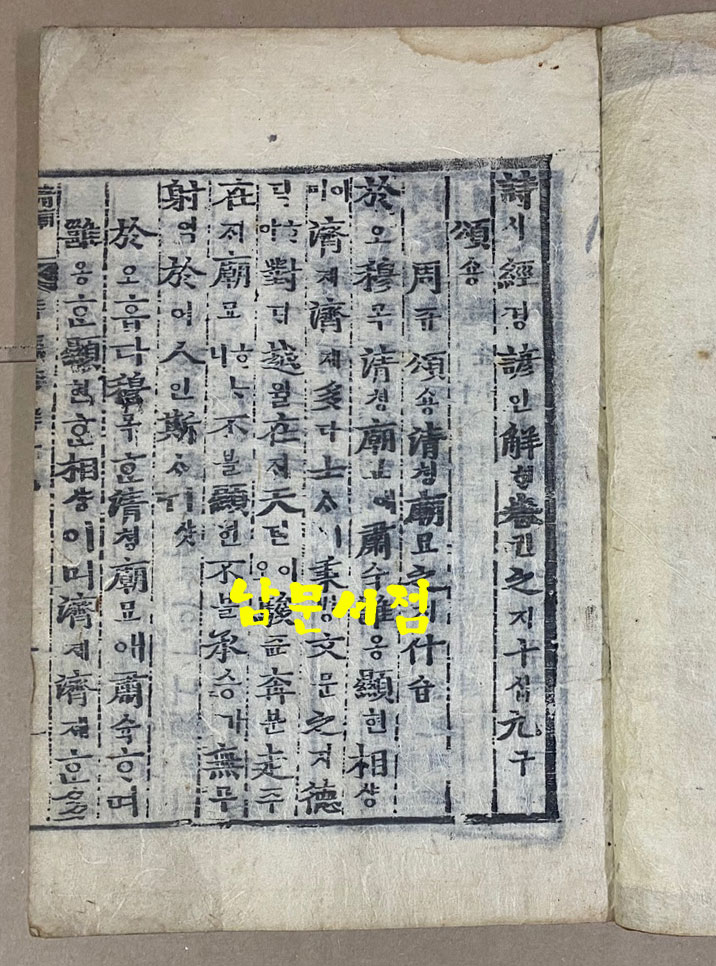 詩시經경諺언解ᄒᆡ卷권之지十십九구
頌숑
周쥬頌숑淸쳥廟묘之지什습
於오穆목淸쳥廟묘애肅슉雝옹顯현相샹
이며濟졔濟졔多다士ᄉᆞㅣ秉병文문之지德덕
ᄒᆞ야對ᄃᆡ越월在ᄌᆡ天텬이오駿쥰奔분走주
在ᄌᆡ廟묘ᄒᆞᄂᆞ니不불顯현不블承승가無무
射역於어人인斯ᄉᆞ
於오홉다穆목ᄒᆞᆫ淸쳥廟묘애肅슉ᄒᆞ며
雝옹ᄒᆞᆫ顯현ᄒᆞᆫ相샹이며濟졔濟졔ᄒᆞᆫ多
남문서점